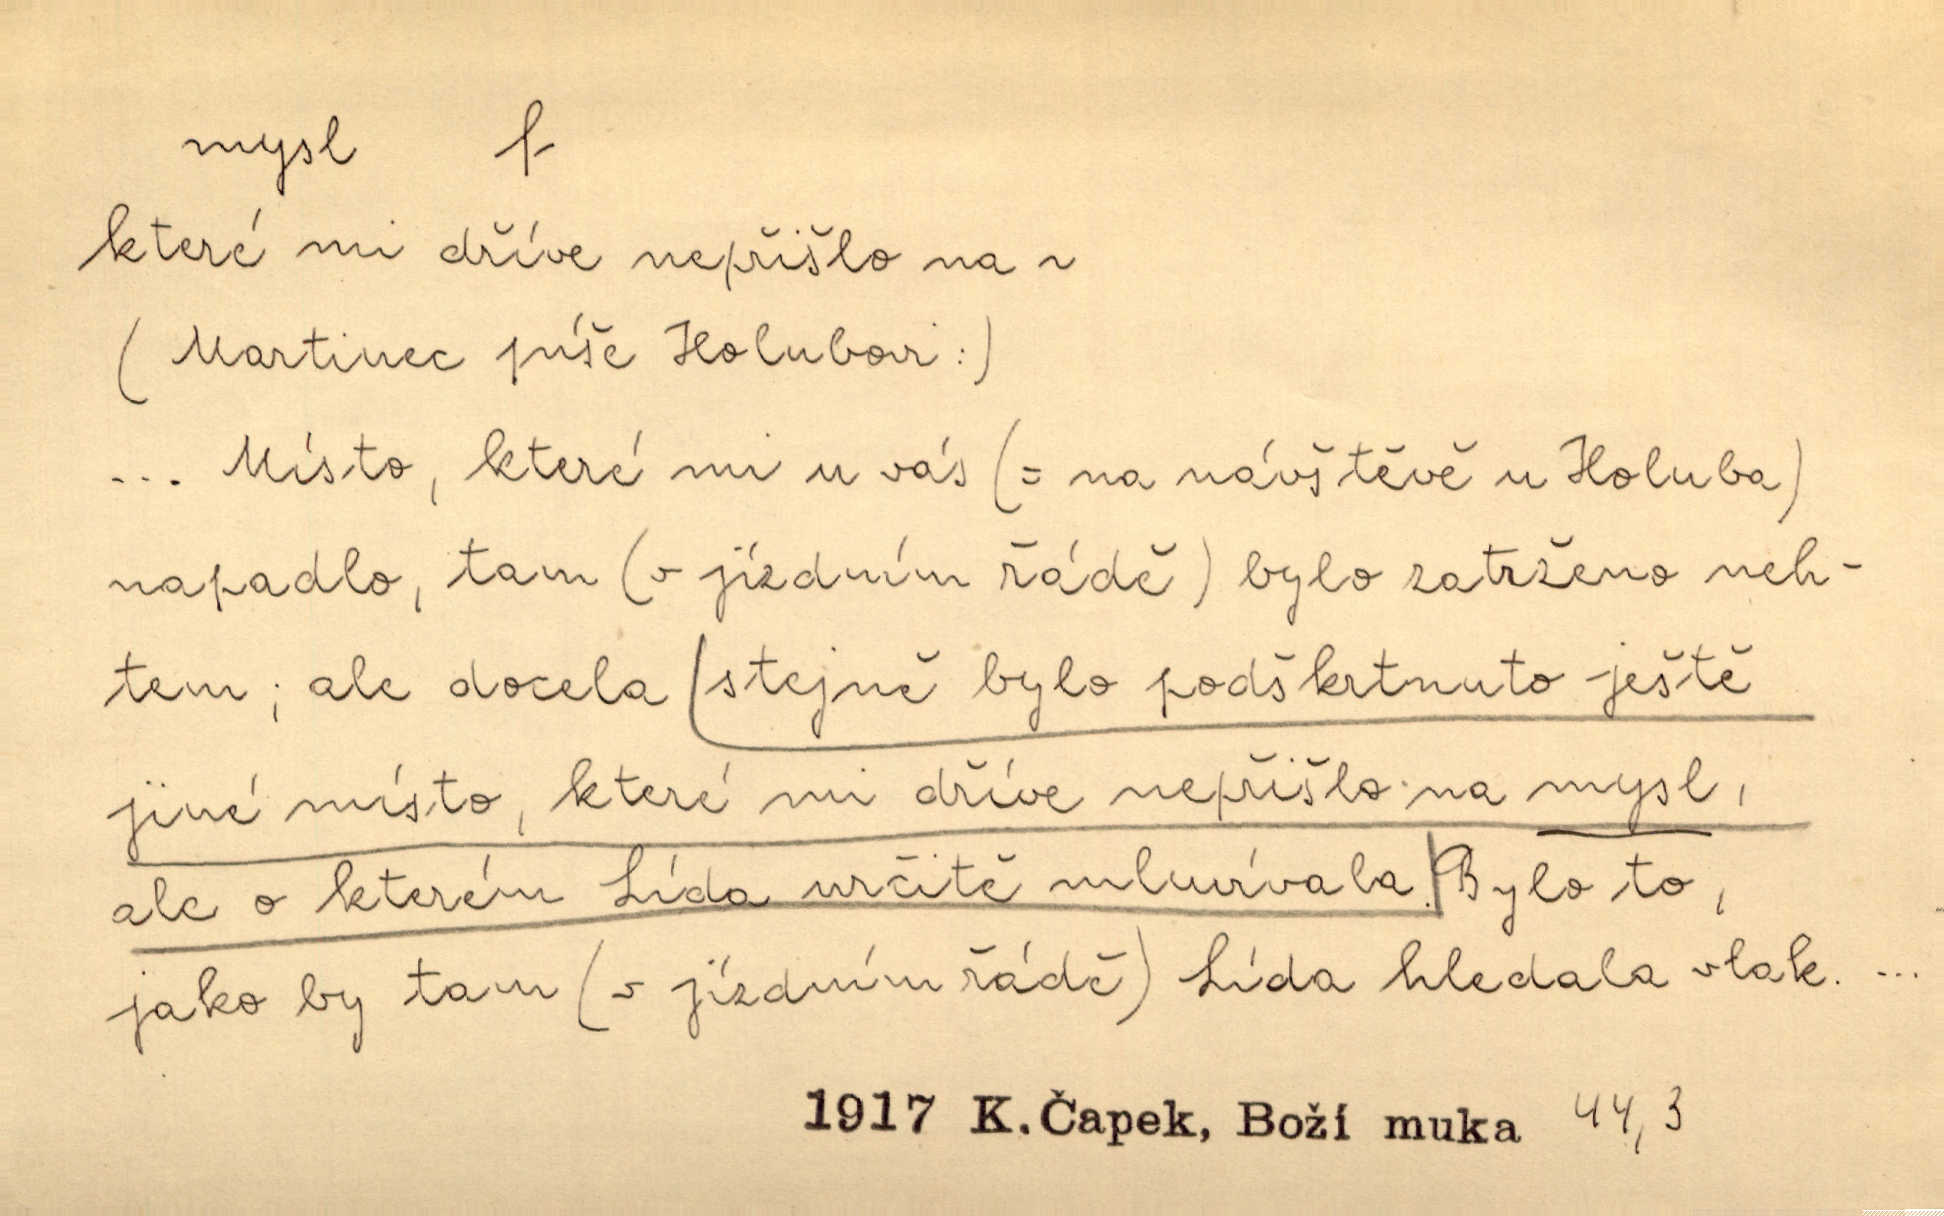 mysl f
které mi dříve nepřišlo na ~
( Martinec píše Holubovi :)
... Místo, které mi u vás (= na návštěvě u Holuba)
napadlo, tam (v jízdním řádě) bylo zatrženo neh-
tem ; ale docela stejně bylo podškrtnuto ještě
jiné místo, které mi dříve nepřišlo na mysl,
ale o kterém Lída určitě mluvívala. Bylo to,
jako by tam (v jízdním řádě) Lída hledala vlak. ...
1917 K. Čapek, Boží muka 44,3